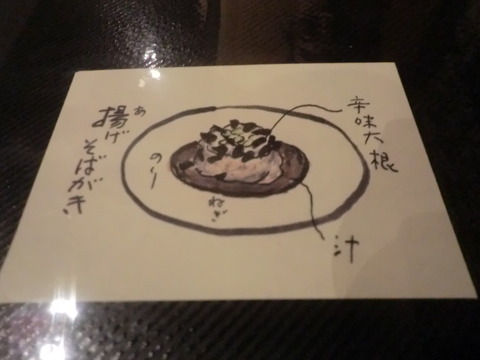 揚げそばがき
あ
のり
ねぎ
辛味大根
汁